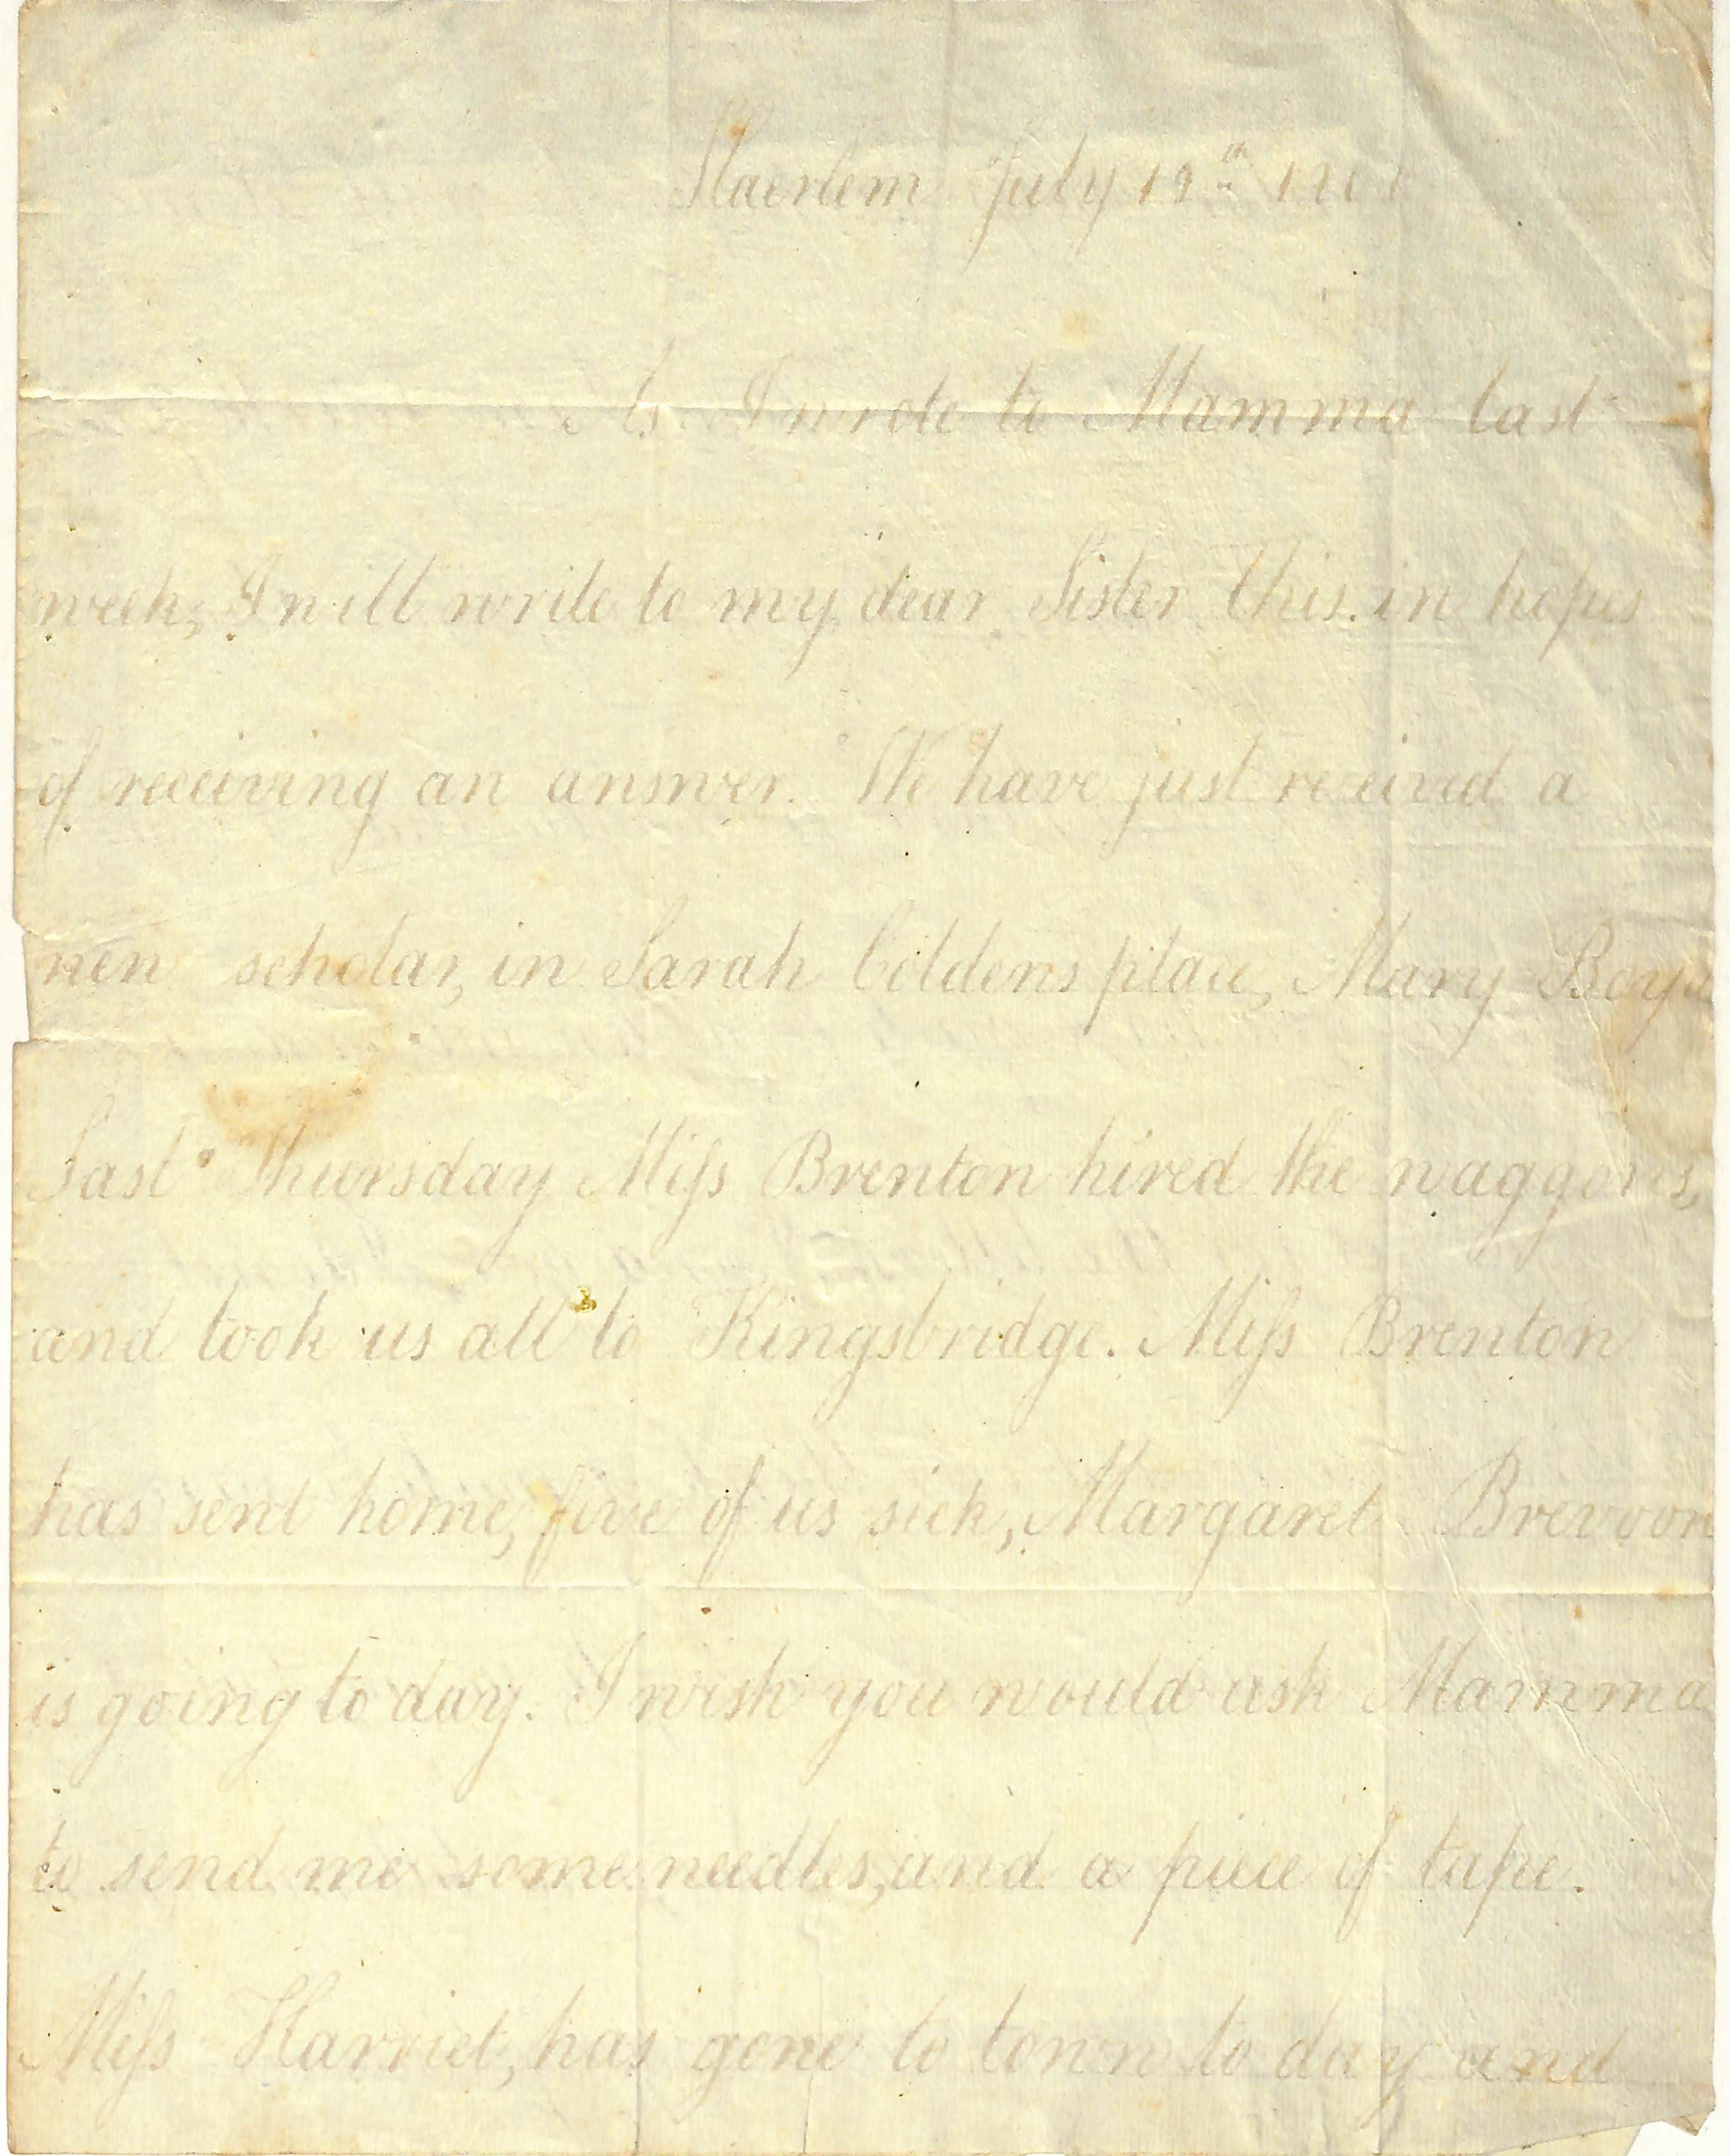 Haerlem July 19th
As I wrote to Mamma last
week, I will write to my dear Sister this. in hopes
of receiving an answer. We have just received a
new scholar, in Sarah Coldens place, Mary Boyd
Last Thursday Miſs Brenton hired the waggons,
and took us all to Kingsbridge. Miſs Brenton
has sent home, five of us sick, Margaret Brevoor
is going to day. I wish you would ask Mamma
to send me some needles, and a piece of tape.
Miſs Harriet, has gone to town to day and